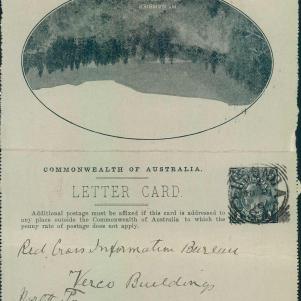 MT GAMBIER
COMMONWEALTH OF AUSTRALIA.
LETTER CARD.
Additional postage must be affixed if this card is addressed to
any place outside the Commonwealth of Australia to which the
penny rate of postage does not apply.
Red Cross Information Bureau
Verco Buildings
North